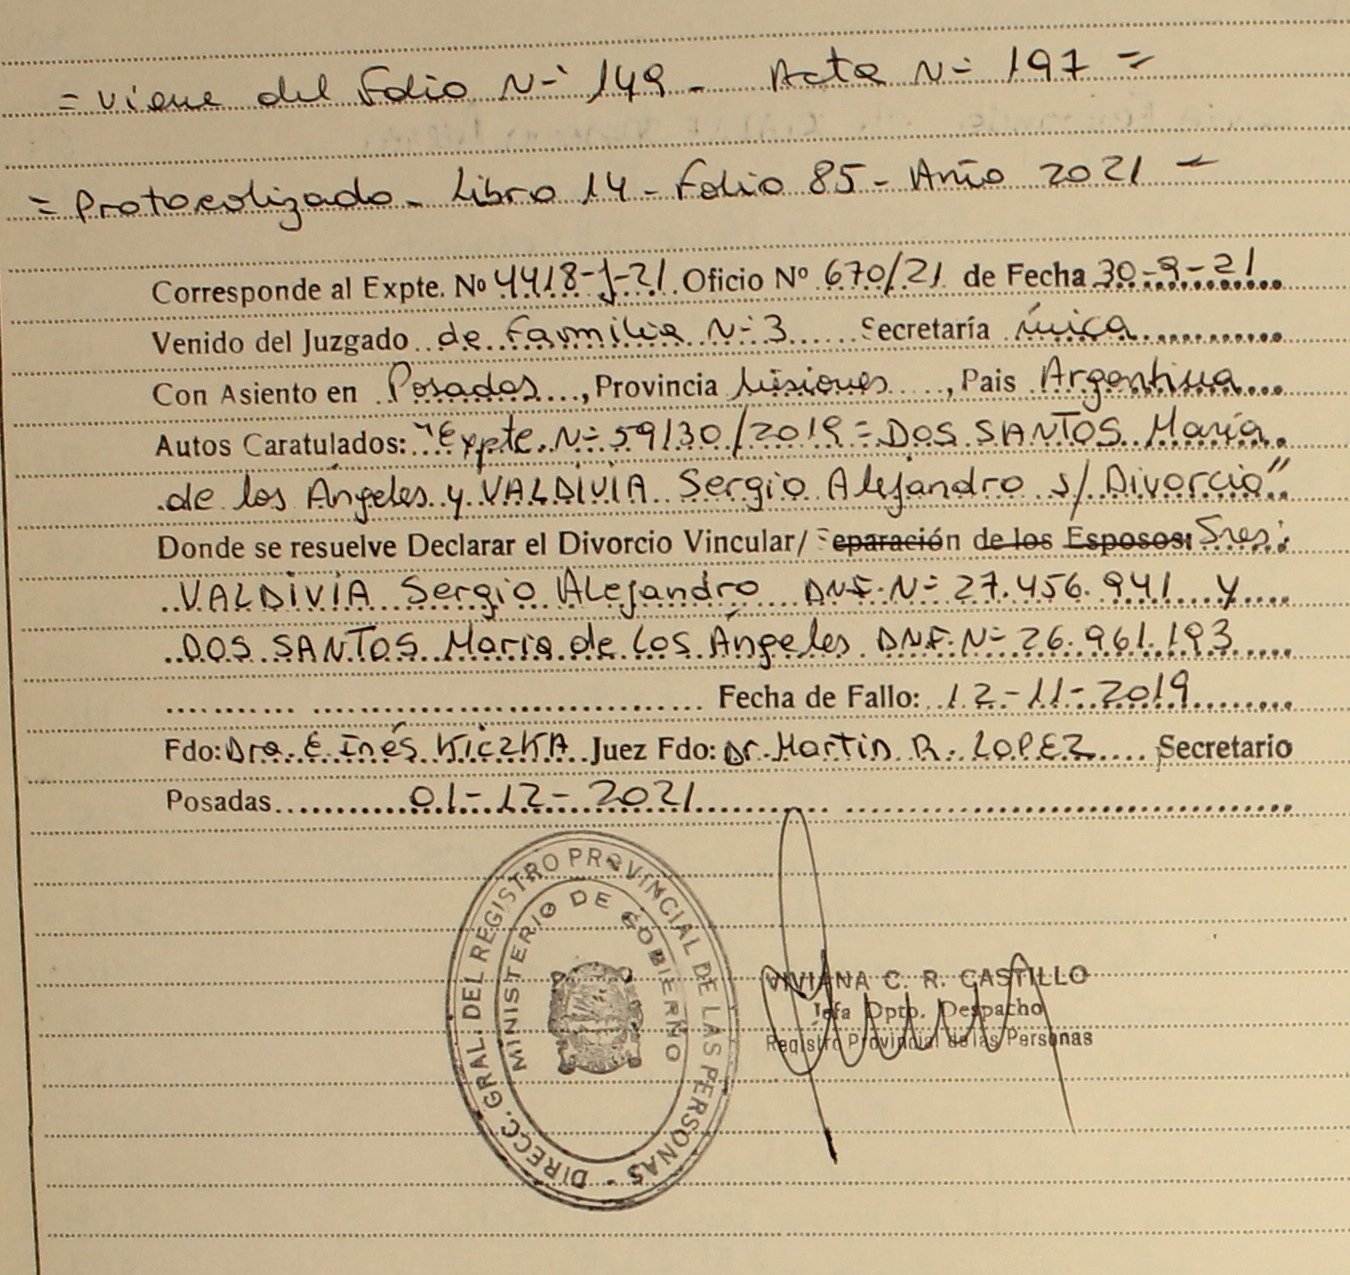 = Viene del Folio Nº 149 - Acta Nº 197 =
= Protocolizado - Libro 14 - Folio 85 - Año 2021 -
Corresponde al Expte. Nº 4418-J-21 Oficio Nº 670/21 de Fecha 30-9-21
Venido del Juzgado de Familia Nº 3 Secretaría única
Con Asiento en Posadas, Provincia Misiones, Pais Argentina
Autos Caratulados: "Expte. Nº 59130/2019 = DOS SANTOS María
de los Ángeles y VALDIVIA Sergio Alejandro s/ Divorcio"
Donde se resuelve Declarar el Divorcio Vincular/ Separación de los Esposos: Sres:
VALDIVIA Sergio Alejandro DNI. Nº 27.456.941 y
DOS SANTOS María de Los Ángeles DNI. Nº 26.961.193
Fecha de Fallo: 12-11-2019
Fdo: Dra. E. Inés KICZKA Juez Fdo: Dr. Martin R. LOPEZ Secretario
Posadas 01-12-2021
DIRECC. GRAL. DEL REGISTRO PROVINCIAL DE LAS PERSONAS -
MINISTERIO DE GOBIERNO
VIVIANA C. R. CASTILLO
Jefa Dpto. Despacho
Registro Provincial de las Personas